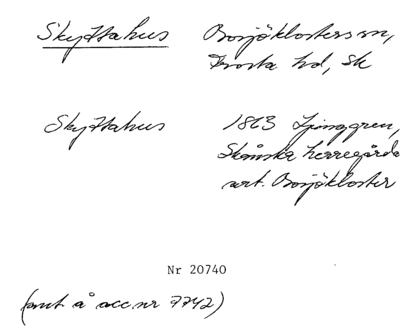 Skyttahus Bosjöklosters sn,
Frosta hd, Sk
Skyttahus 1863 Ljunggren,
Skånska herregårdar
art. Bosjökloster
Nr 20740
(ant å acc.nr 7742)